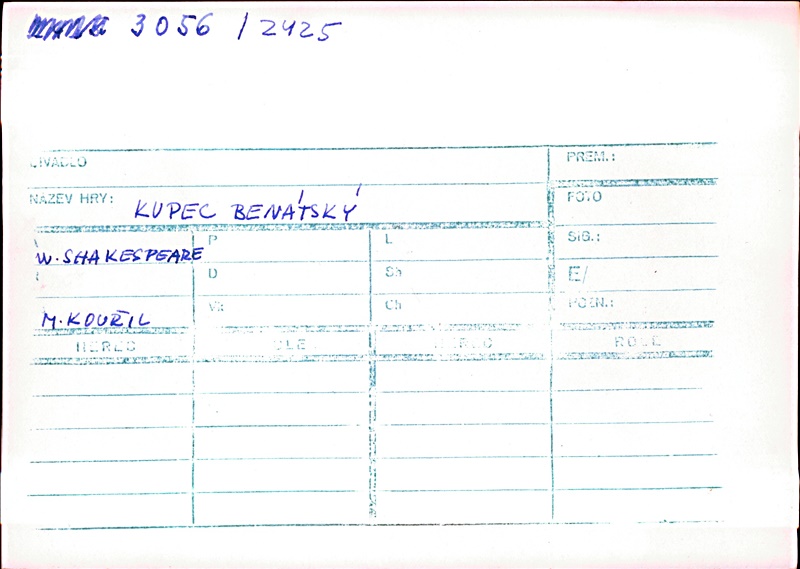 3056 / 2425
DIVADLO PREM.:
NÁZEV HRY: KUPEC BENÁTSKÝ FOTO
W. SHAKESPEARE P L SIG.:
D Sh E/
M. KOUŘIL Vk Ch POZN.:
HEREC ROLE HEREC ROLE